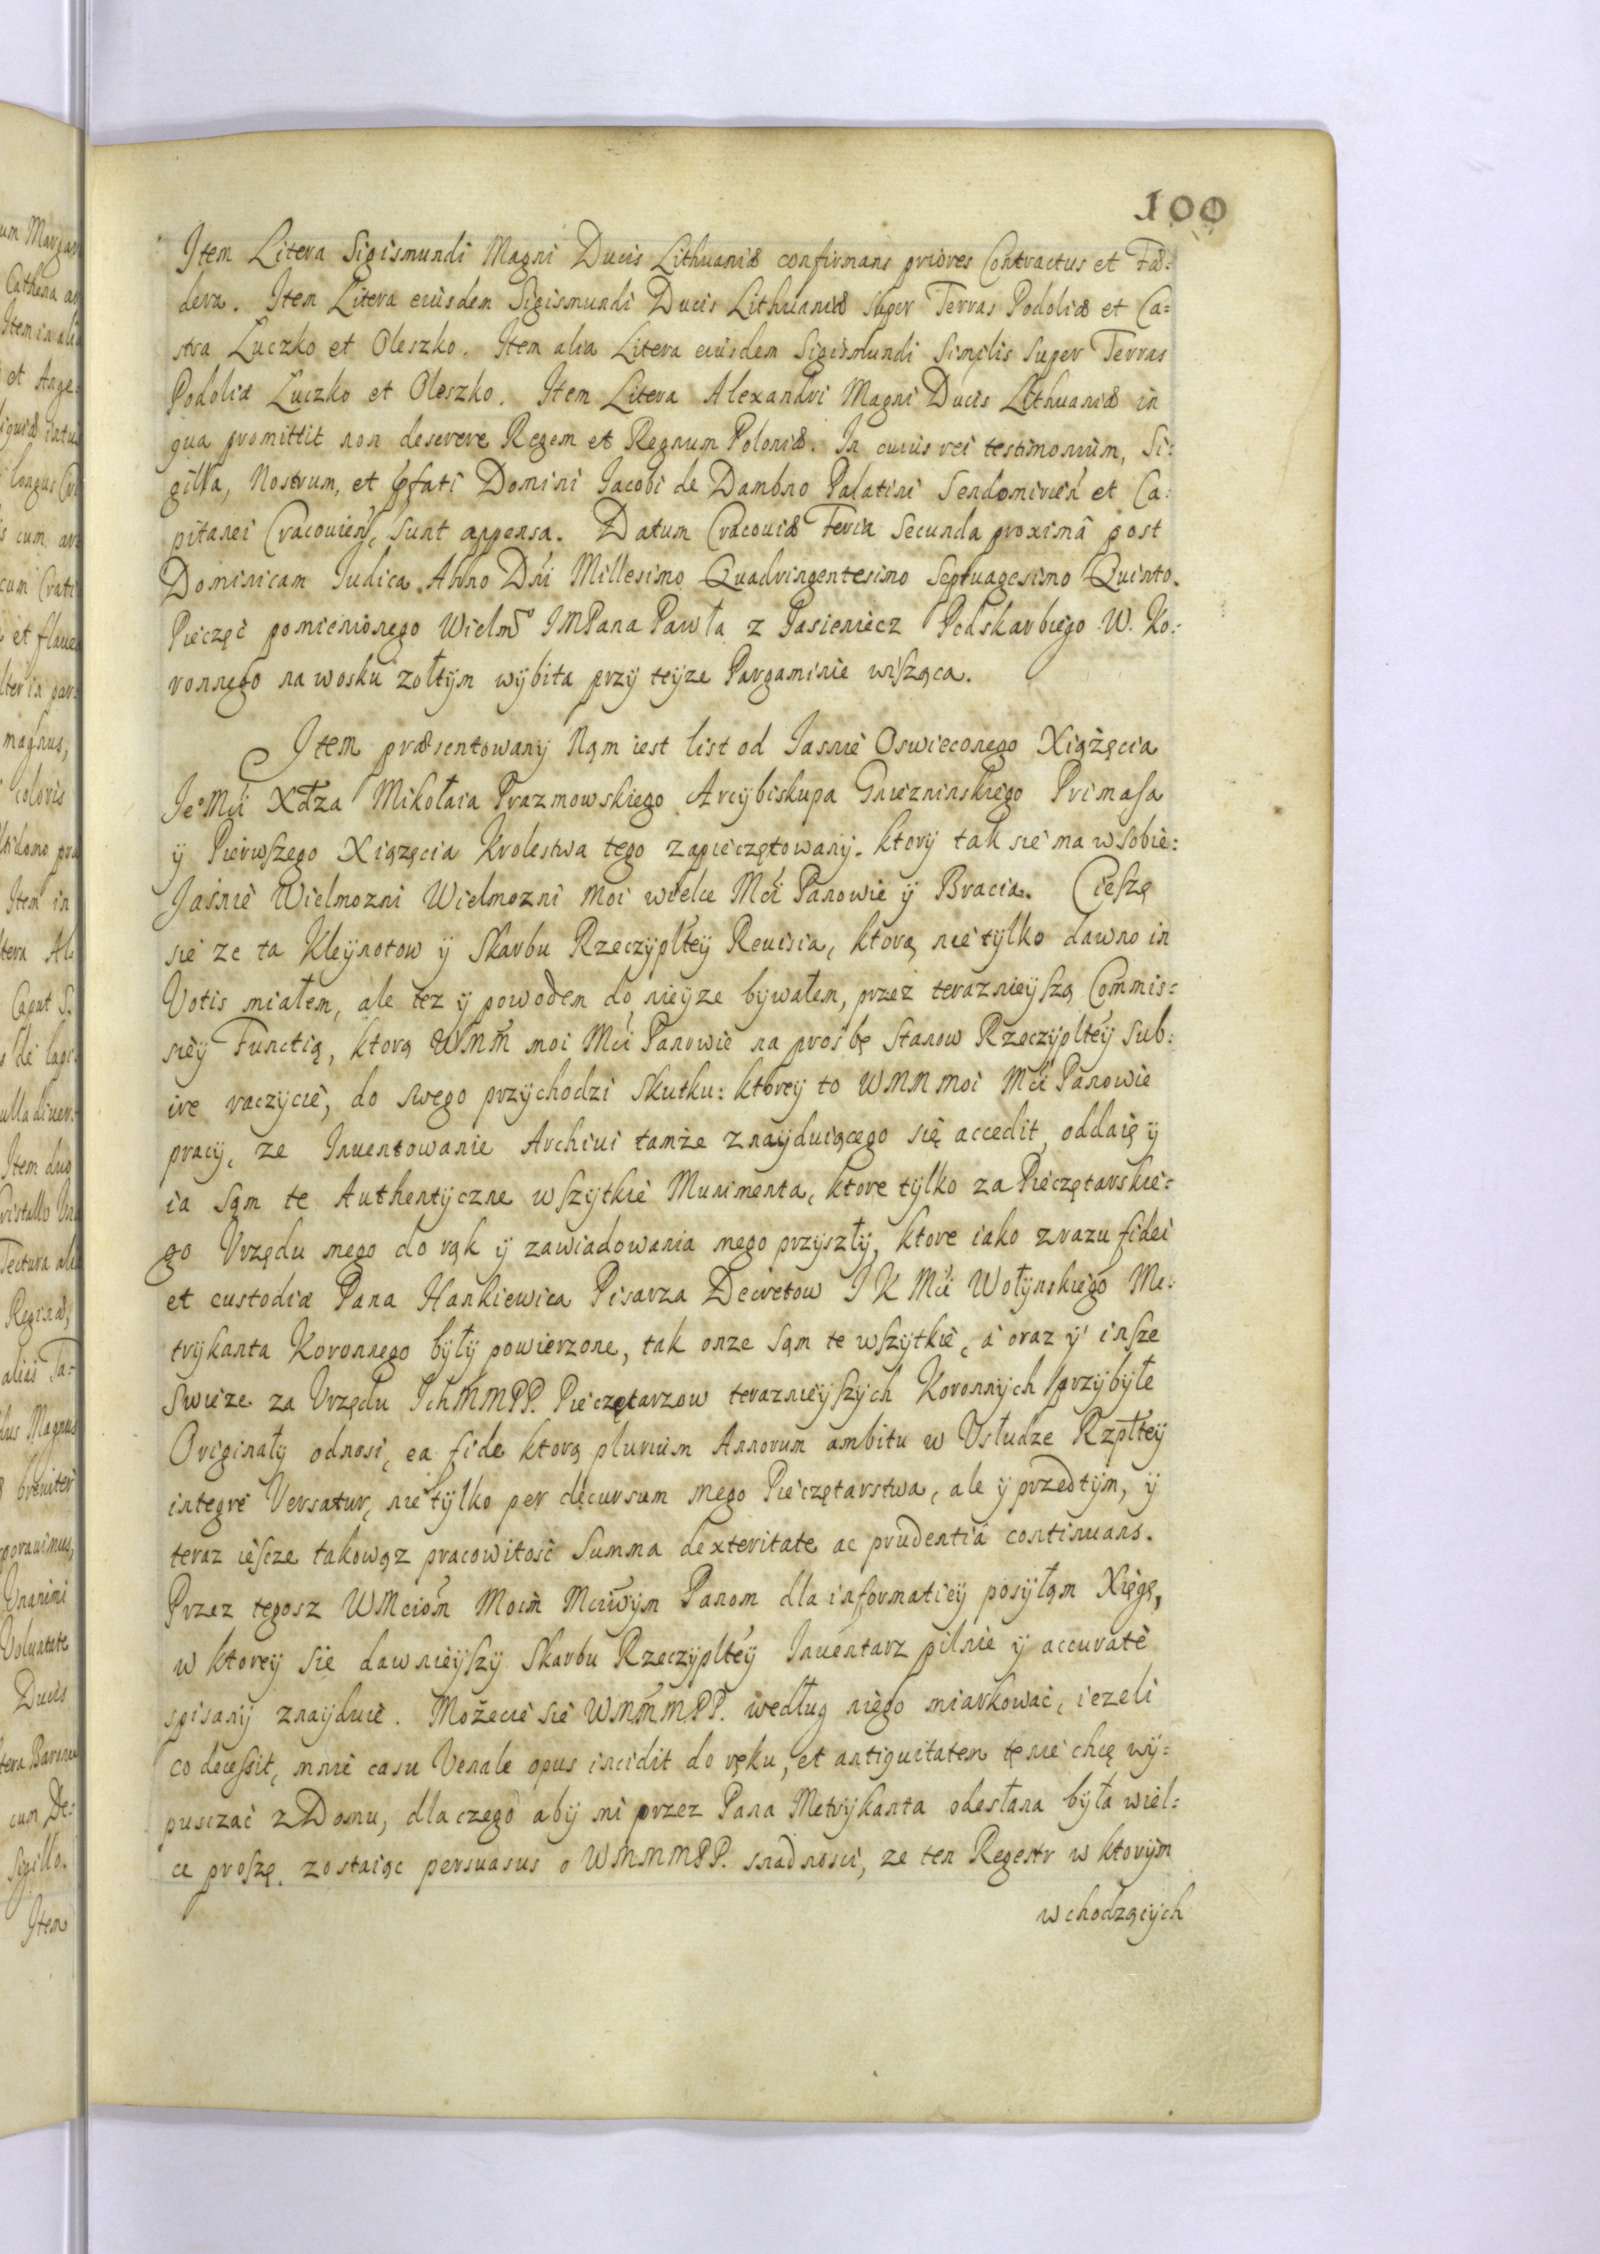 100
Item Litera Sigismundi Magni Ducis Lithuaniæ confirmans priores Contractus et Fæ:
dera. Item Litera eiusdem Sigismundi Ducis Lithuaniæ super Terras Podoliæ et Ca=
stra Luczko et Oleszko. Item alia Litera eiusdem Sigismundi Similis Super Terras
Podoliæ Luczko et Oleszko. Item Litera Alexandri Magni Ducis Lithuaniæ in
qua promittit non deserere Regem et Regnum Poloniæ. In cuius rei testimonium, Si:
gilla, Nostrum, et pfati Domini Jacobi de Dambno Palatini Sendomirien et Ca:
pitanei Cracovien, sunt appensa. Datum Cracoviæ Feria Secunda proximâ post
Dominicam Judica. Anno Dńi Millesimo Quadringentesimo Septuagesimo Quinto.
Pieczęć pomienionego Wielmo IMPana Pawła z Jasieniecz Podskarbiego W. Ko:
ronnego na wosku zołtym wybita przy teyze Pargaminie wisząca.
Item præsentowany Nąm iest list od Jasnie Oswieconego Xiążęcia
Jeo Mci Xdza Mikołaia Prazmowskiego Arcybiskupa Gnieznińskiego Primasa
y Pierwszego Xiązęcia Krolestwa tego zapieczętowany. ktory tak sie ma w sobie:
Jaśnie Wielmozni Wielmozni Moi wielce Mci Panowie y Bracia. Cieszę
sie ze ta Kleynotow y Skarbu Rzeczypltey Revisia, ktorą nie tylko dawno in
Votis miałem, ale tez y powodem do nieyze bywałem, przez teraznieyszą Commis:
siey Functią, ktorą WMM moi Mci Panowie na prośbę Stanow Rzeczypltey sub:
ire raczycie, do swego przychodzi Skutku: ktorey to WMM moi Mci Panowie
pracy, ze Inventowanie Archivi tamże znayduiącego się accedit, oddaię y
ia sąm te Authentyczne wszytkie Munimenta, ktore tylko za Pieczętarskie:
go Vrzędu mego do rąk y zawiadowania mego przyszły, ktore iako zrazu fidei
et custodiæ Pana Hankiewica Pisarza Decretow J K Mci Wołynskiego Me:
trykanta Koronnego były powierzone, tak onze sąm te wszytkie, a oraz y insze
swieze za Vrzędu IchMMPP. Pieczętarzow teraznieyszych Koronnych przybyłe
Originały odnosi, ea fide ktorą plurium Annorum ambitu w Vsłudze Rzpltey
integre Versatur, nie tylko per decursum mego Pieczętarstwa, ale y przedtym, y
teraz ieszcze takowąz pracowitość Summa dexteritate ac prudentia continuans.
Przez tegosz WMciom Moim Mciwym Panom dla informatiey posyłąm Xięgę,
w ktorey sie dawnieyszy Skarbu Rzeczypltey Inventarz pilnie y accurate
spisany znayduie. Możecie sie WMMMPP. według niego miarkować, iezeli
co decessit, mnie casu Venale opus incidit do ręku, et antiquitatem tę nie chcę wy=
puszczać z Domu, dla czego aby mi przez Pana Metrykanta odesłana była wiel:
ce proszę. zostaiąc persuasus o WMMMPP. snadnosci, ze ten Regestr w ktorym
wchodzących